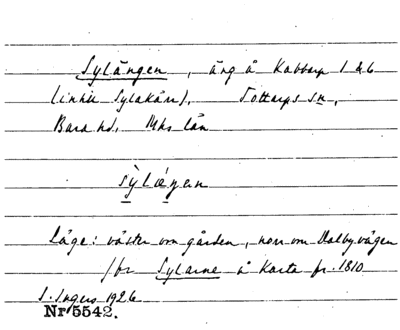 Sylängen, äng å Kabbarp 1 & 6
(inkl. Sylakärr). Tottarps sn,
Bara hd, Mhs län
sỳlæ̀ŋen
Läge: väster om gården, norr om Dalbyvägen
/för Sylarne å karta fr. 1810
S. Ingers 1926
Nr 5542.